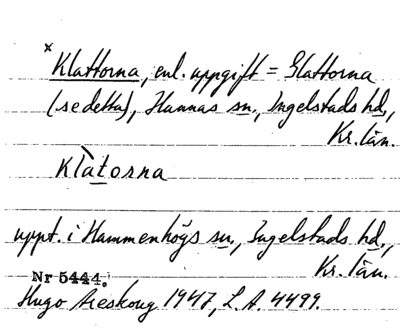 x
Klattorna, enl. uppgift = Glattorna
(se detta), Hannas sn., Ingelstads hd.,
Kr. län.
Klàtorna
uppt. i Hammenhögs sn., Ingelstads hd.,
Kr. län.
Nr 5444.
Hugo Areskoug 1947, L.A. 4499.